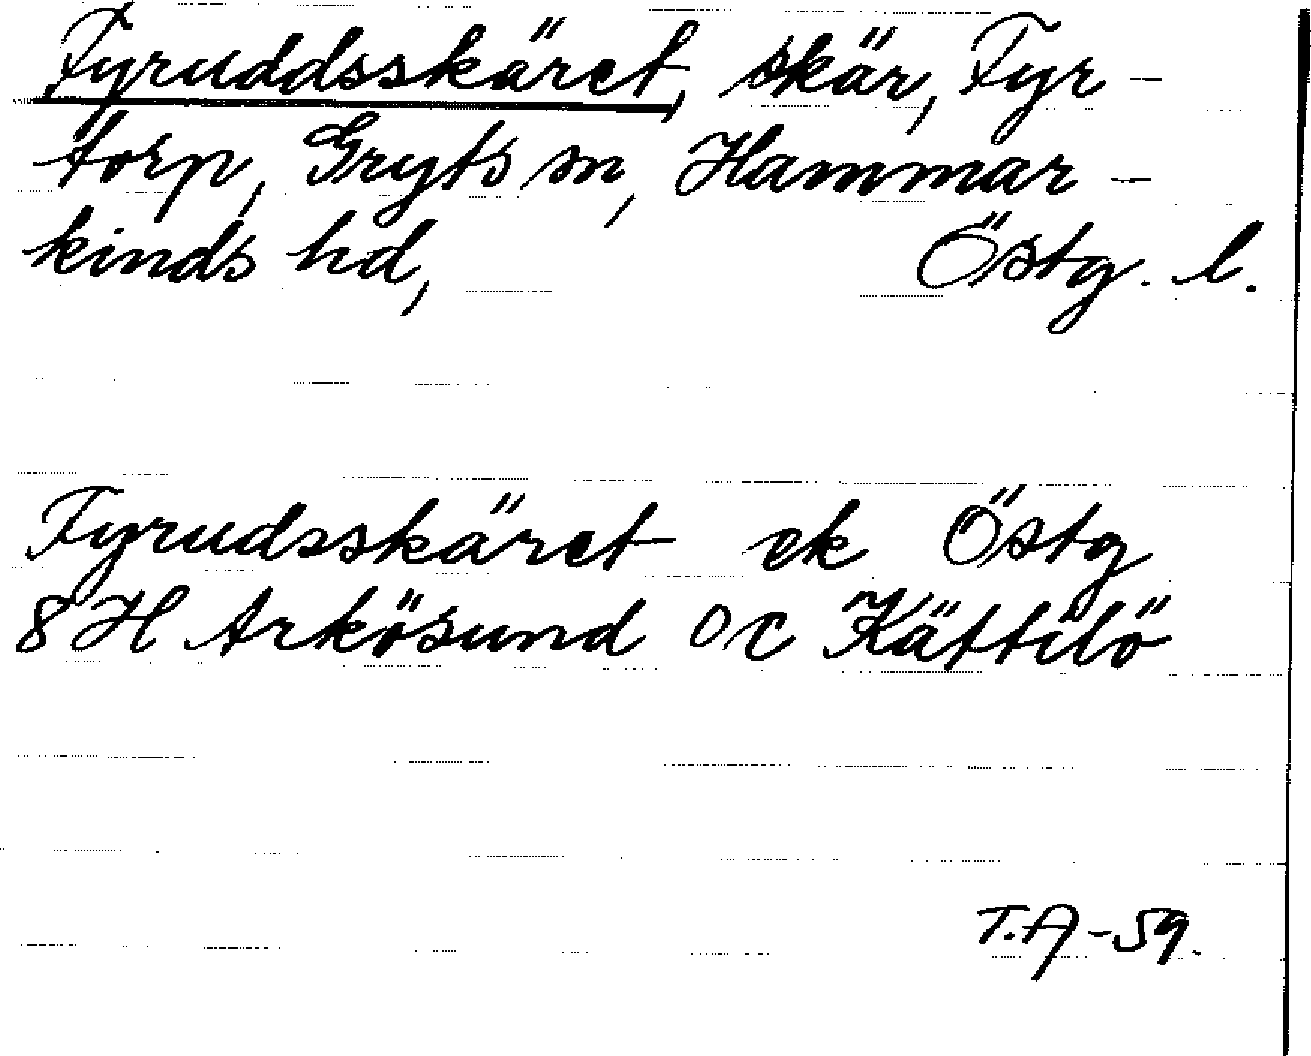 Fyruddsskäret, skär, Fyr-
torp, Gryts sn, Hammar-
kinds hd, Östg. l.
Fyrudsskäret ek Östg
8 H Arkösund OC Kättilö
T.A-59.